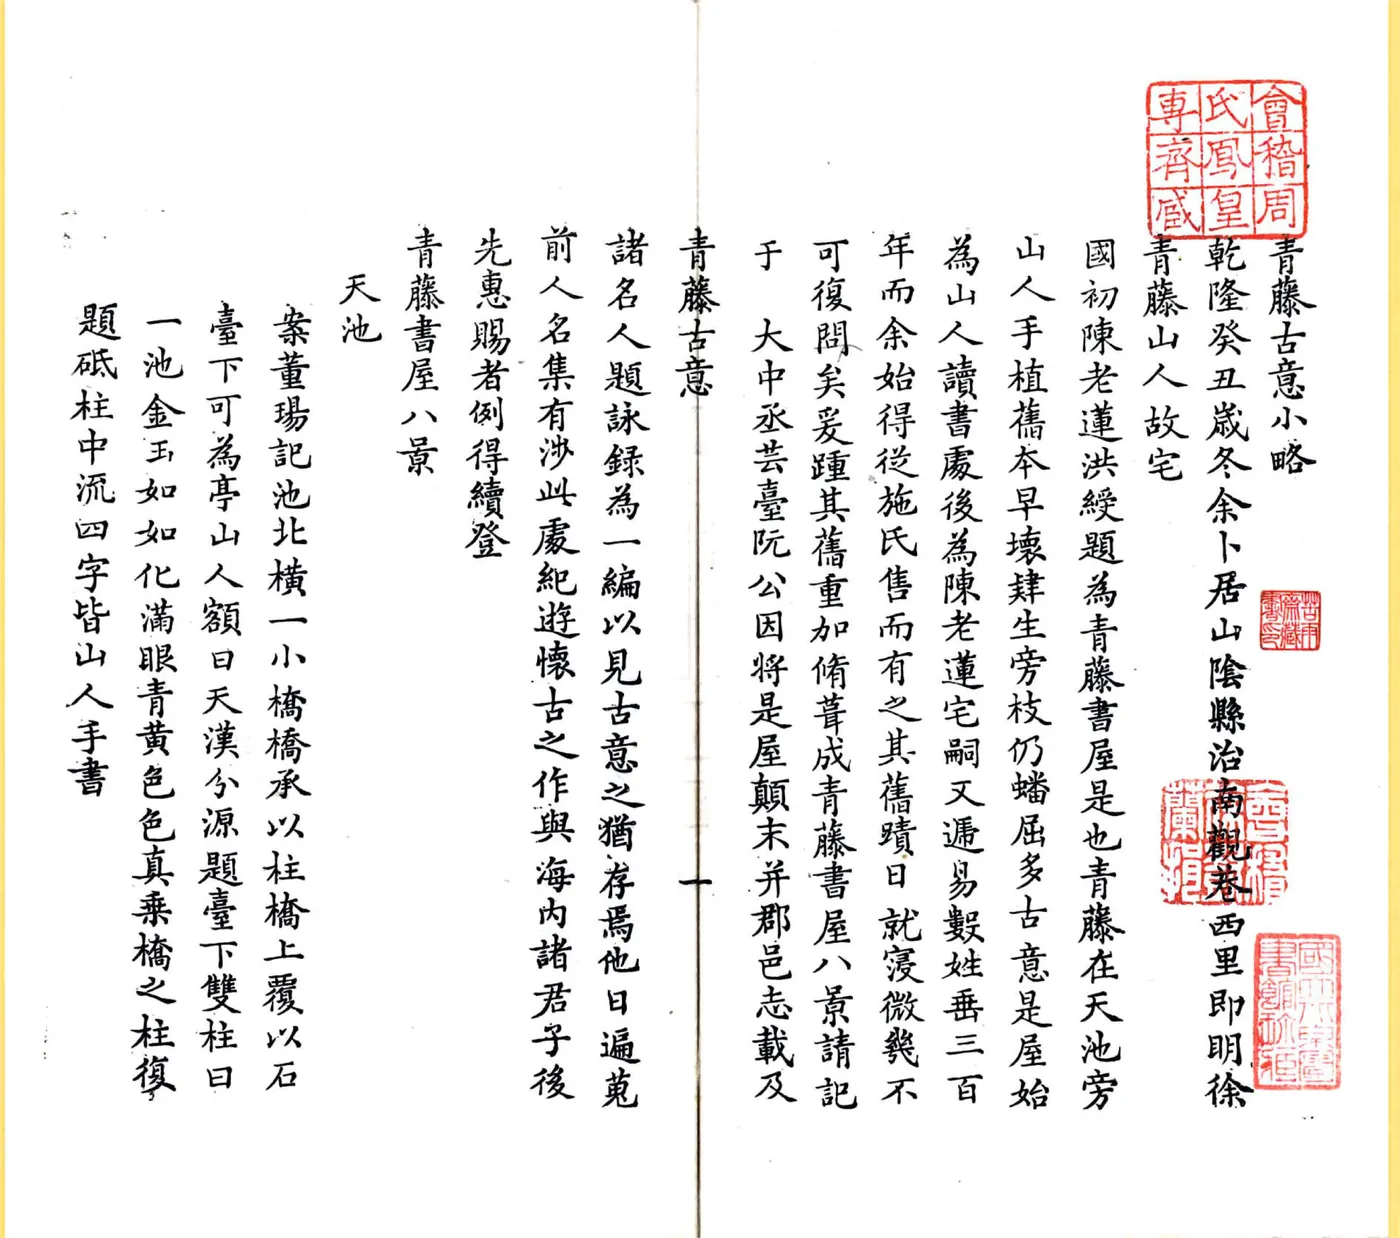 會稽周
氏鳳皇
專齋臧
青藤古意小略
乾隆癸丑歲冬余卜居山陰縣治南觀巷西里即明徐
青藤山人故宅
國初陳老蓮洪綬題為青藤書屋是也青藤在天池旁
山人手植舊本早壞肄生旁枝仍蟠屈多古意是屋始
為山人讀書處後為陳老蓮宅嗣又遞易數姓垂三百
年而余始得從施氏售而有之其舊蹟日就寖微幾不
可復問矣爰踵其舊重加脩葺成青藤書屋八景請記
于 大中丞芸臺阮公因將是屋顛末并郡邑志載及
青藤古意
一
諸名人題詠録為一編以見古意之猶存焉他日遍蒐
前人名集有涉此處紀遊懷古之作與海內諸君子後
先惠賜者例得續登
青藤書屋八景
天池
案董瑒記池北橫一小橋橋承以柱橋上覆以石
臺下可為亭山人額曰天漢分源題臺下雙柱曰
一池金玉如如化滿眼青黃色色真乘橋之柱復
題砥柱中流四字皆山人手書